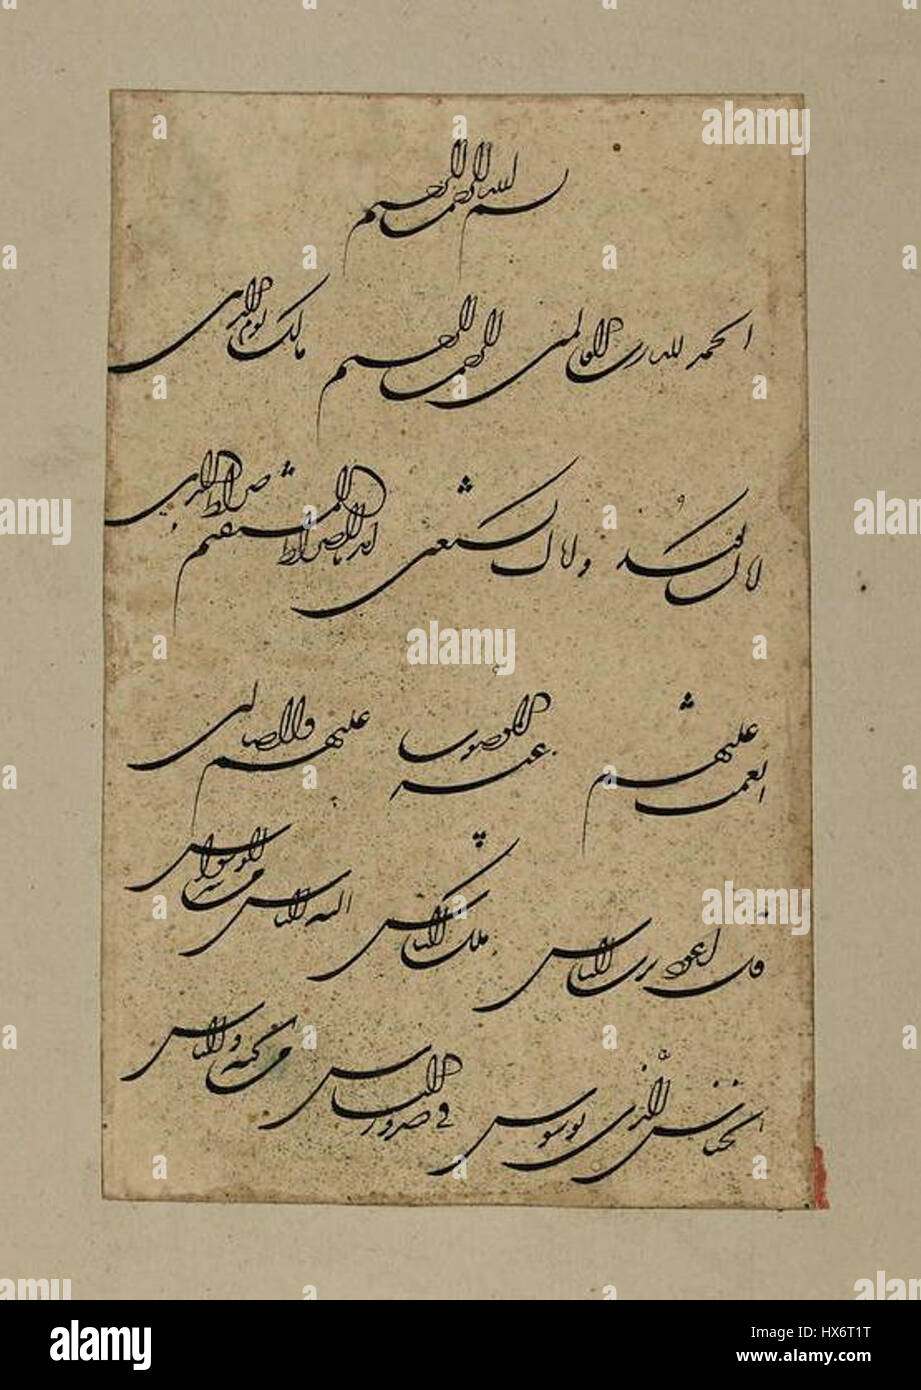 بسم الله الرحمن الرحیم
الحمد لله رب العالمین الرحمن الرحیم مالک یوم الدین
ایاک نعبد و ایاک نستعین اهدنا الصراط المستقیم صراط الذین
انعمت علیهم غیر المغضوب علیهم ولا الضالین
قل اعوذ برب الناس ملک الناس اله الناس من شر الوسواس
الخناس الذی یوسوس فی صدور الناس من الجنة والناس
alamy
Image ID: HX6T1T
www.alamy.com